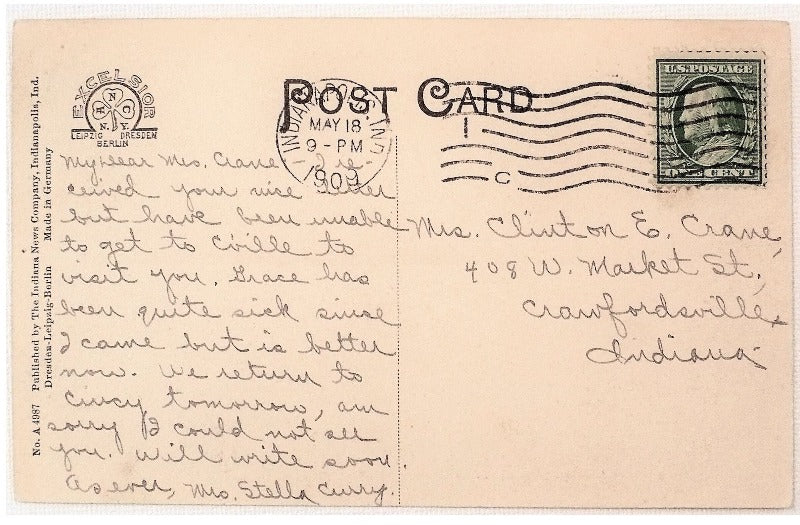 POST CARD
EXCELSIOR
A N C
N.Y.
LEIPZIG DRESDEN
BERLIN
INDIANAPOLIS, IND.
MAY 18
9 - PM
1909
1
C
U.S. POSTAGE
No. A 4987 Published by The Indiana News Company, Indianapolis, Ind.
Dresden-Leipzig-Berlin Made in Germany
My dear Mrs. Crane - I re-
ceived your nice letter
but have been unable
to get to C'ville to
visit you. Grace has
been quite sick since
I came but is better
now. We return to
Cincy tomorrow, am
sorry I could not see
you. Will write soon.
As ever, Mrs. Stella Curry.
Mrs. Clinton E. Crane,
408 W. Market St.,
Crawfordsville,
Indiana